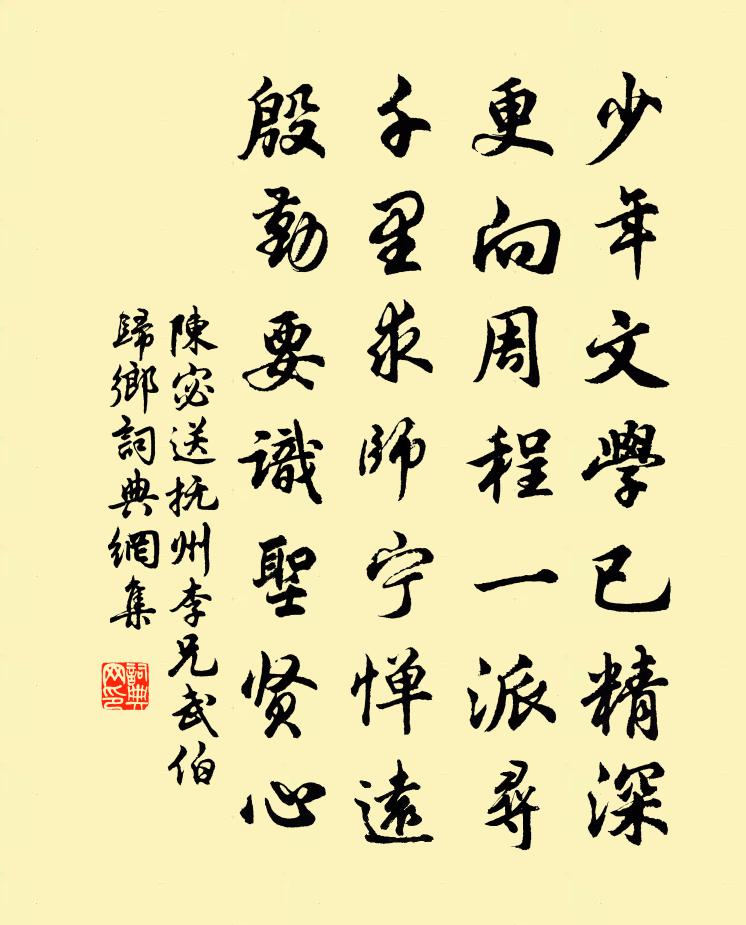 少年文學已精深
更向周程一派尋
千里求师宁惮遠
殷勤要識聖贤心
陳宓送抚州李兄武伯
歸鄉詞典網集
詞典
网印